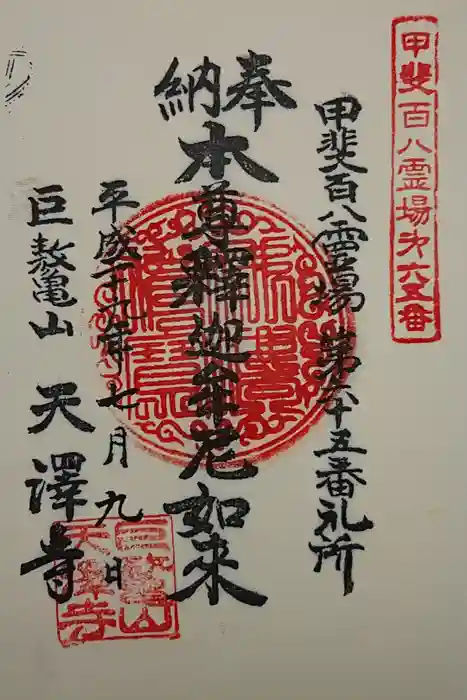 甲斐百八霊場第六五番
甲斐百八霊場 第六十五番札所
奉納
本尊釋迦牟尼如来
平成十九年七月九日
巨鰲山 天澤寺
巨鰲山
天澤寺